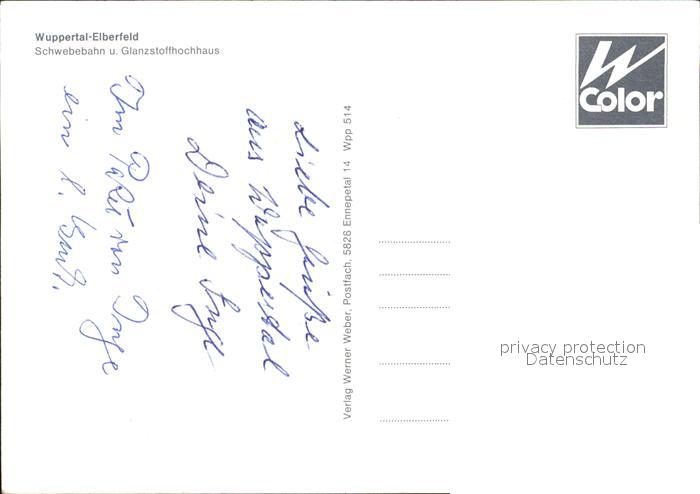 Wuppertal-Elberfeld
Schwebebahn u. Glanzstoffhochhaus
W
Color
Liebe Grüße
aus Wuppertal
Deine Inge
Im Paket von Inge
ein
Verlag Werner Weber, Postfach, 5828 Ennepetal 14 Wpp 514
privacy protection
Datenschutz